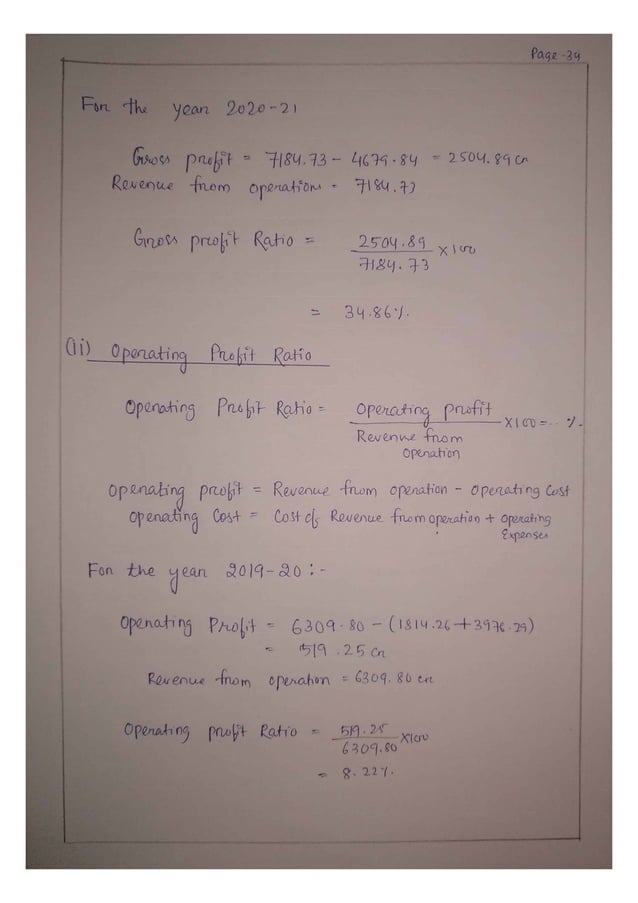 Page-34
For the year 2020-21
Gross profit = 7184.73 - 4679.84 = 2504.89 cr
Revenue from operations = 7184.73
Gross profit Ratio = 2504.89 / 7184.73 X 100
= 34.86%.
(ii) Operating Profit Ratio
Operating Profit Ratio = Operating profit / Revenue from Operation X100 = .. %.
Operating profit = Revenue from operation - Operating Cost
Operating Cost = Cost of Revenue from operation + Operating Expenses
For the year 2019-20 :-
Operating Profit = 6309.80 - (1814.26 + 3976.29)
= 519.25 cr
Revenue from operation = 6309.80 cr
Operating profit Ratio = 519.25 / 6309.80 X100
= 8.22%.